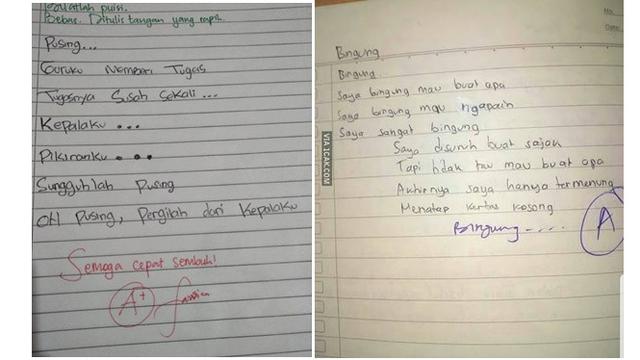 Buatlah puisi.
Bebas. Ditulis tangan yang rapi.
Pusing...
Guruku Memberi Tugas
Tugasnya Susah Sekali...
Kepalaku...
Pikiranku...
Sungguhlah Pusing
Oh Pusing, Pergilah dari Kepalaku
Semoga cepat sembuh!
A+
No.
Date
Bingung
Bingung
Saya bingung mau buat apa
Saya bingung mau ngapain
Saya sangat bingung
Saya disuruh buat sajak
Tapi tidak tau mau buat apa
Akhirnya saya hanya termenung
Menatap kertas kosong
Bingung.....
A
VIA 1CAK.COM